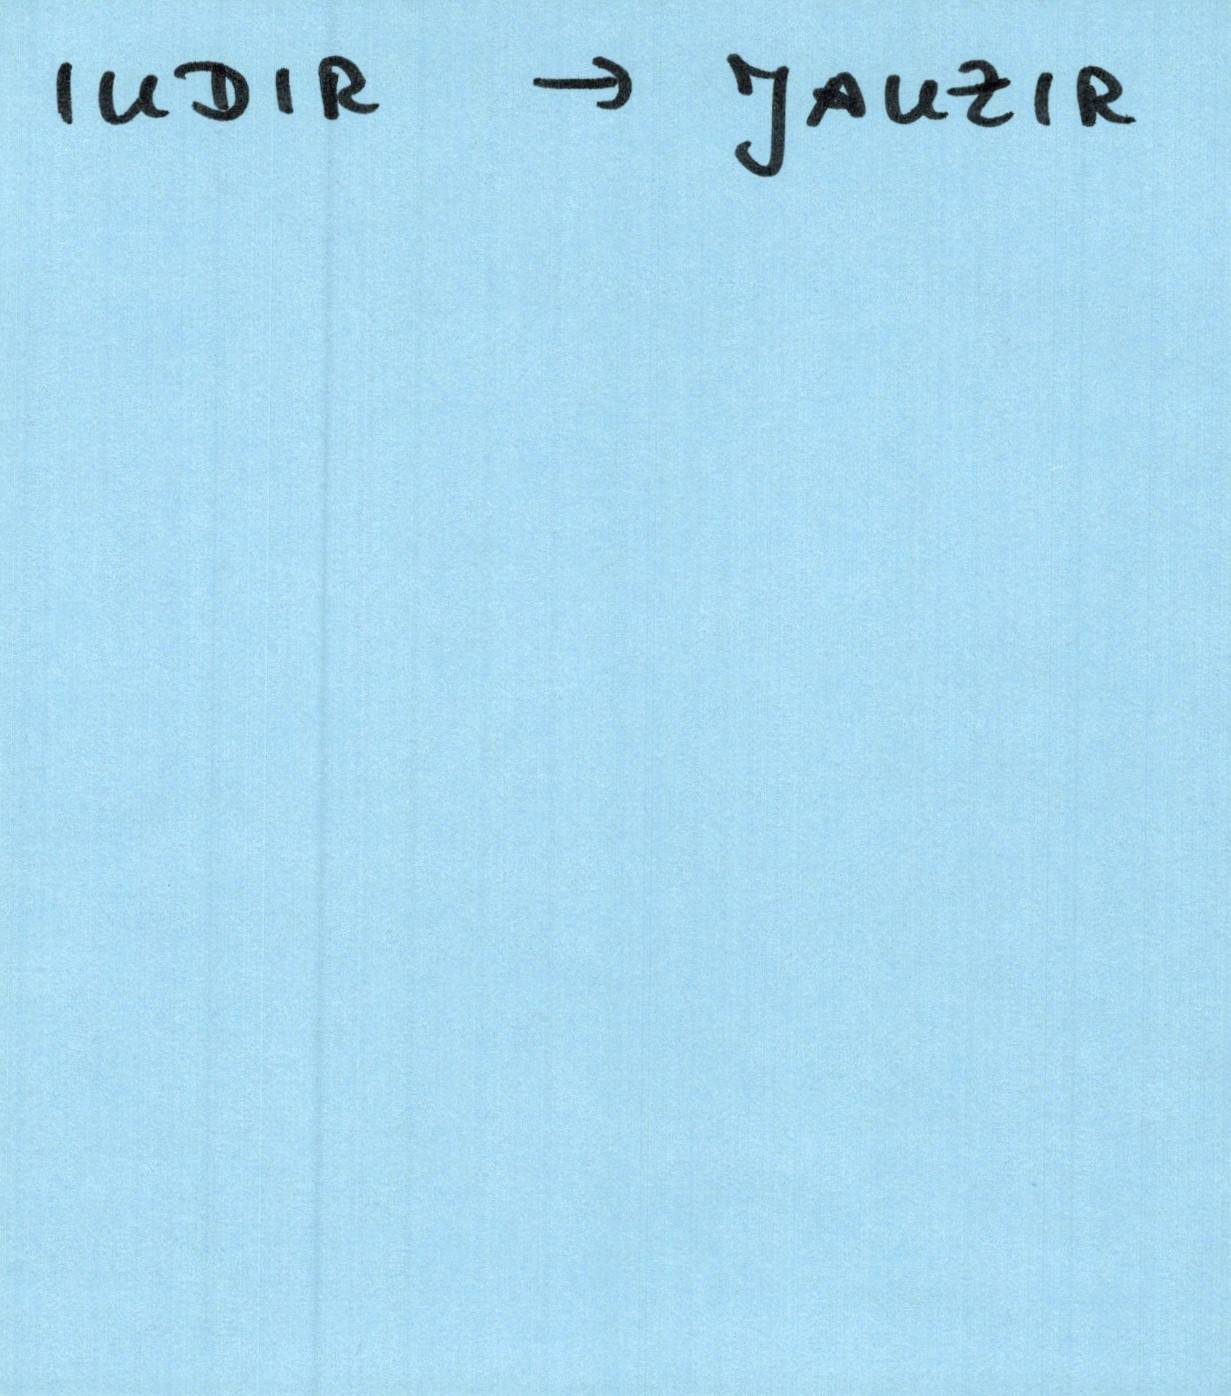 IUDIR → JAUZIR